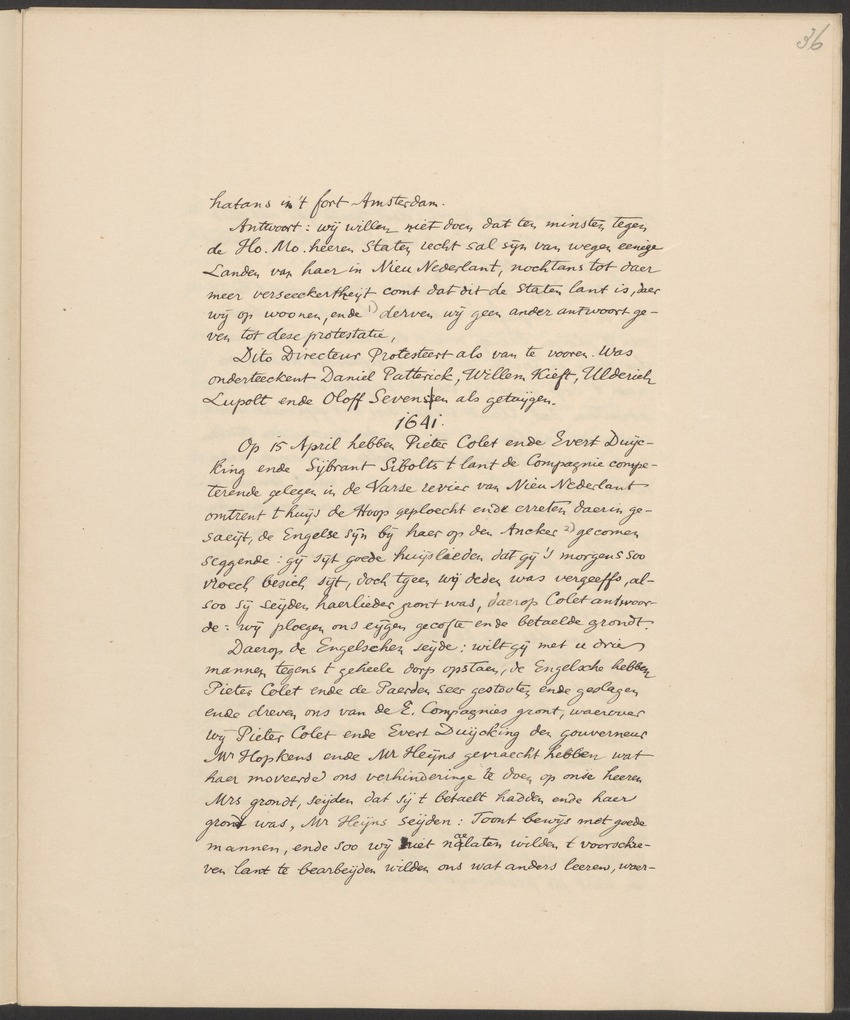 36
hatans in 't fort Amsterdam.
Antwoort: wij willen niet doen dat ten minsten tegen
de Ho. Mo. heeren Staten recht sal sijn van wegen eenige
Landen van haer in Nieu Nederlant, nochtans tot daer
meer verseeckertheijt comt dat dit de Staten lant is, daer
wij op woonen, ende 1) derven wij geen ander antwoort ge-
ven tot dese protestatie,
Dito Directeur Protesteert als van te vooren. Was
onderteeckent Daniel Patterick, Willem Kieft, Ulderich
Lupolt ende Oloff Sevensen als getuijgen.
1641.
Op 15 April hebben Pieter Colet ende Evert Duijc-
king ende Sijbrant Sibolts t lant de Compagnie compe-
terende gelegen in de Varse revier van Nieu Nederlant
omtrent t huijs de Hoop geploecht ende erreten daerin ge-
saeijt, de Engelse sijn bij haer op den Ancker 2) gecomen
seggende: gij sijt goede huijslieden dat gij 's morgens soo
vroech besich sijt, doch tgeen wij deden was vergeeffs, al-
soo sij seijden haerlieder gront was, daerop Colet antwoor-
de: wij ploegen ons eijgen gecofte ende betaelde grondt.
Daerop de Engelschen seijde: wilt gij met u drie
mannen tegens t geheele dorp opstaen, de Engelsche hebben
Pieter Colet ende de Paerden seer gestooten ende geslagen
ende dreven ons van de E. Compagnies gront, waerover
wij Pieter Colet ende Evert Duijcking den gouverneur
Mr Hopkens ende Mr Heijns gevraecht hebben wat
haer moveerde ons verhinderinge te doen op onse heeren
Mrs grondt, seijden dat sij t betaelt hadden ende haer
gront was, Mr Heijns seijden: Toont bewijs met goede
mannen, ende soo wij niet naelaten wilden t voorschre-
ven lant te bearbeijden wilden ons wat anders leeren, waer-